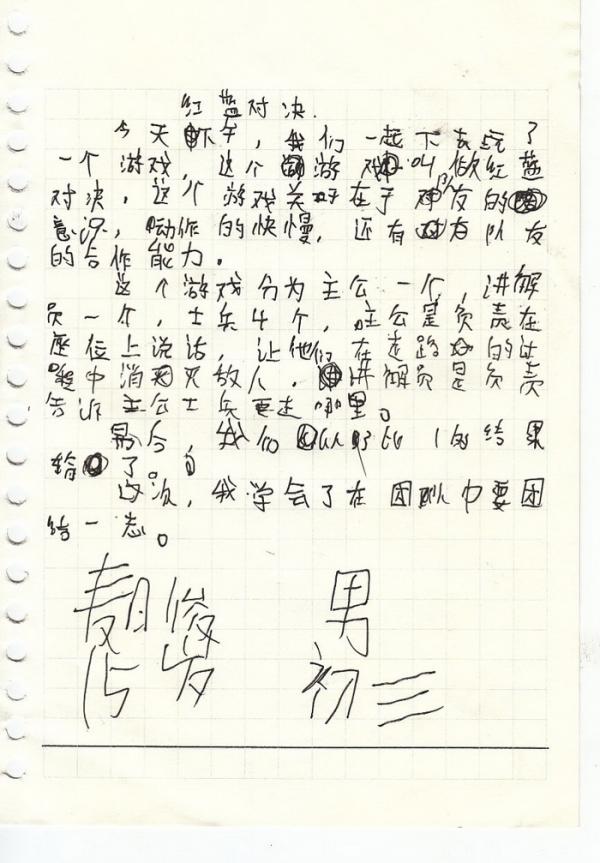 红蓝对决.
今天下午，我们一起下去玩了
一个游戏，这个游戏叫做红蓝
对决。这个游戏关好在于对友的
意识，动作的快慢，还有对友队友
的合作能力。
这个游戏分为主公一个，讲解
员一个，士兵4个，主公是负责在
座位上说话，让他们在走路的过
程中消灭敌人，讲解员是负责
告诉主公士兵要走哪里。
最今，我们以3比1的结果
输了。
这次，我学会了在团队中要团
结一志。
俊 男
15岁 初三